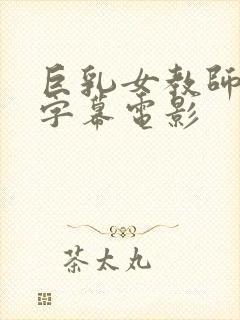 巨乳女教師
字幕電影
茶太丸